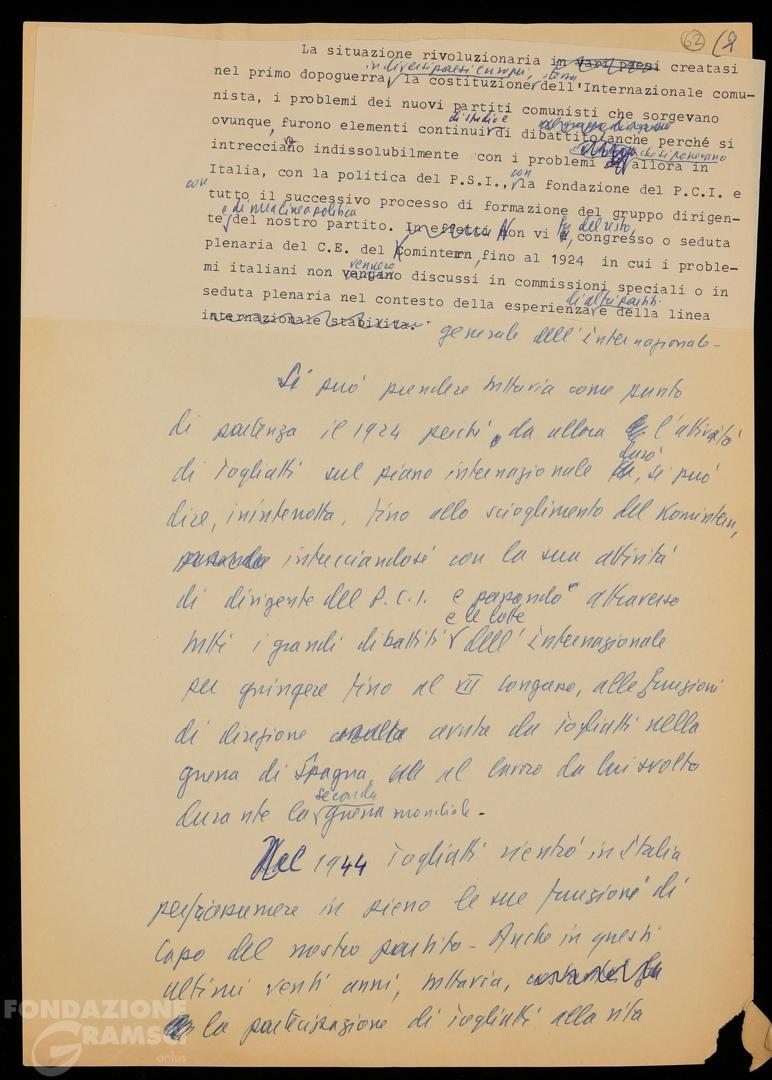 62 (2
La situazione rivoluzionaria in vari paesi creatasi
in diversi paesi europei, stessa
nel primo dopoguerra, la costituzione dell'Internazionale comu-
nista, i problemi dei nuovi partiti comunisti che sorgevano
di studio e
ovunque, furono elementi continui di dibattito anche perché si
che si ponevano
intrecciano indissolubilmente con i problemi allora in
con con
Italia, con la politica del P.S.I., la fondazione del P.C.I. e
tutto il successivo processo di formazione del gruppo dirigen-
e di una linea politica
te del nostro partito. In effetti Non vi fu, del resto, congresso o seduta
plenaria del C.E. del Komintern, fino al 1924 in cui i proble-
vennero
mi italiani non vengano discussi in commissioni speciali o in
di altri partiti
seduta plenaria nel contesto della esperienza e della linea
internazionale stabilita. generale dell'Internazionale-
Si può prendere tuttavia come punto
di partenza il 1924 perché, da allora l'attività
durò
di Togliatti sul piano internazionale, si può
dire, ininterrotta, fino allo scioglimento del Komintern,
passando intrecciandosi con la sua attività
di dirigente del P.C.I. e passando attraverso
e le lotte
tutti i grandi dibattiti dell'Internazionale
per giungere fino al VII congresso, alle funzioni
di direzione avuta da Togliatti nella
guerra di Spagna, al lavoro da lui svolto
seconda
durante la guerra mondiale-
Nel 1944 Togliatti rientrò in Italia
per riassumere in pieno le sue funzione di
Capo del nostro partito- Anche in questi
ultimi venti anni, tuttavia,
la partecipazione di Togliatti alla vita
FONDAZIONE
GRAMSCI
onlus